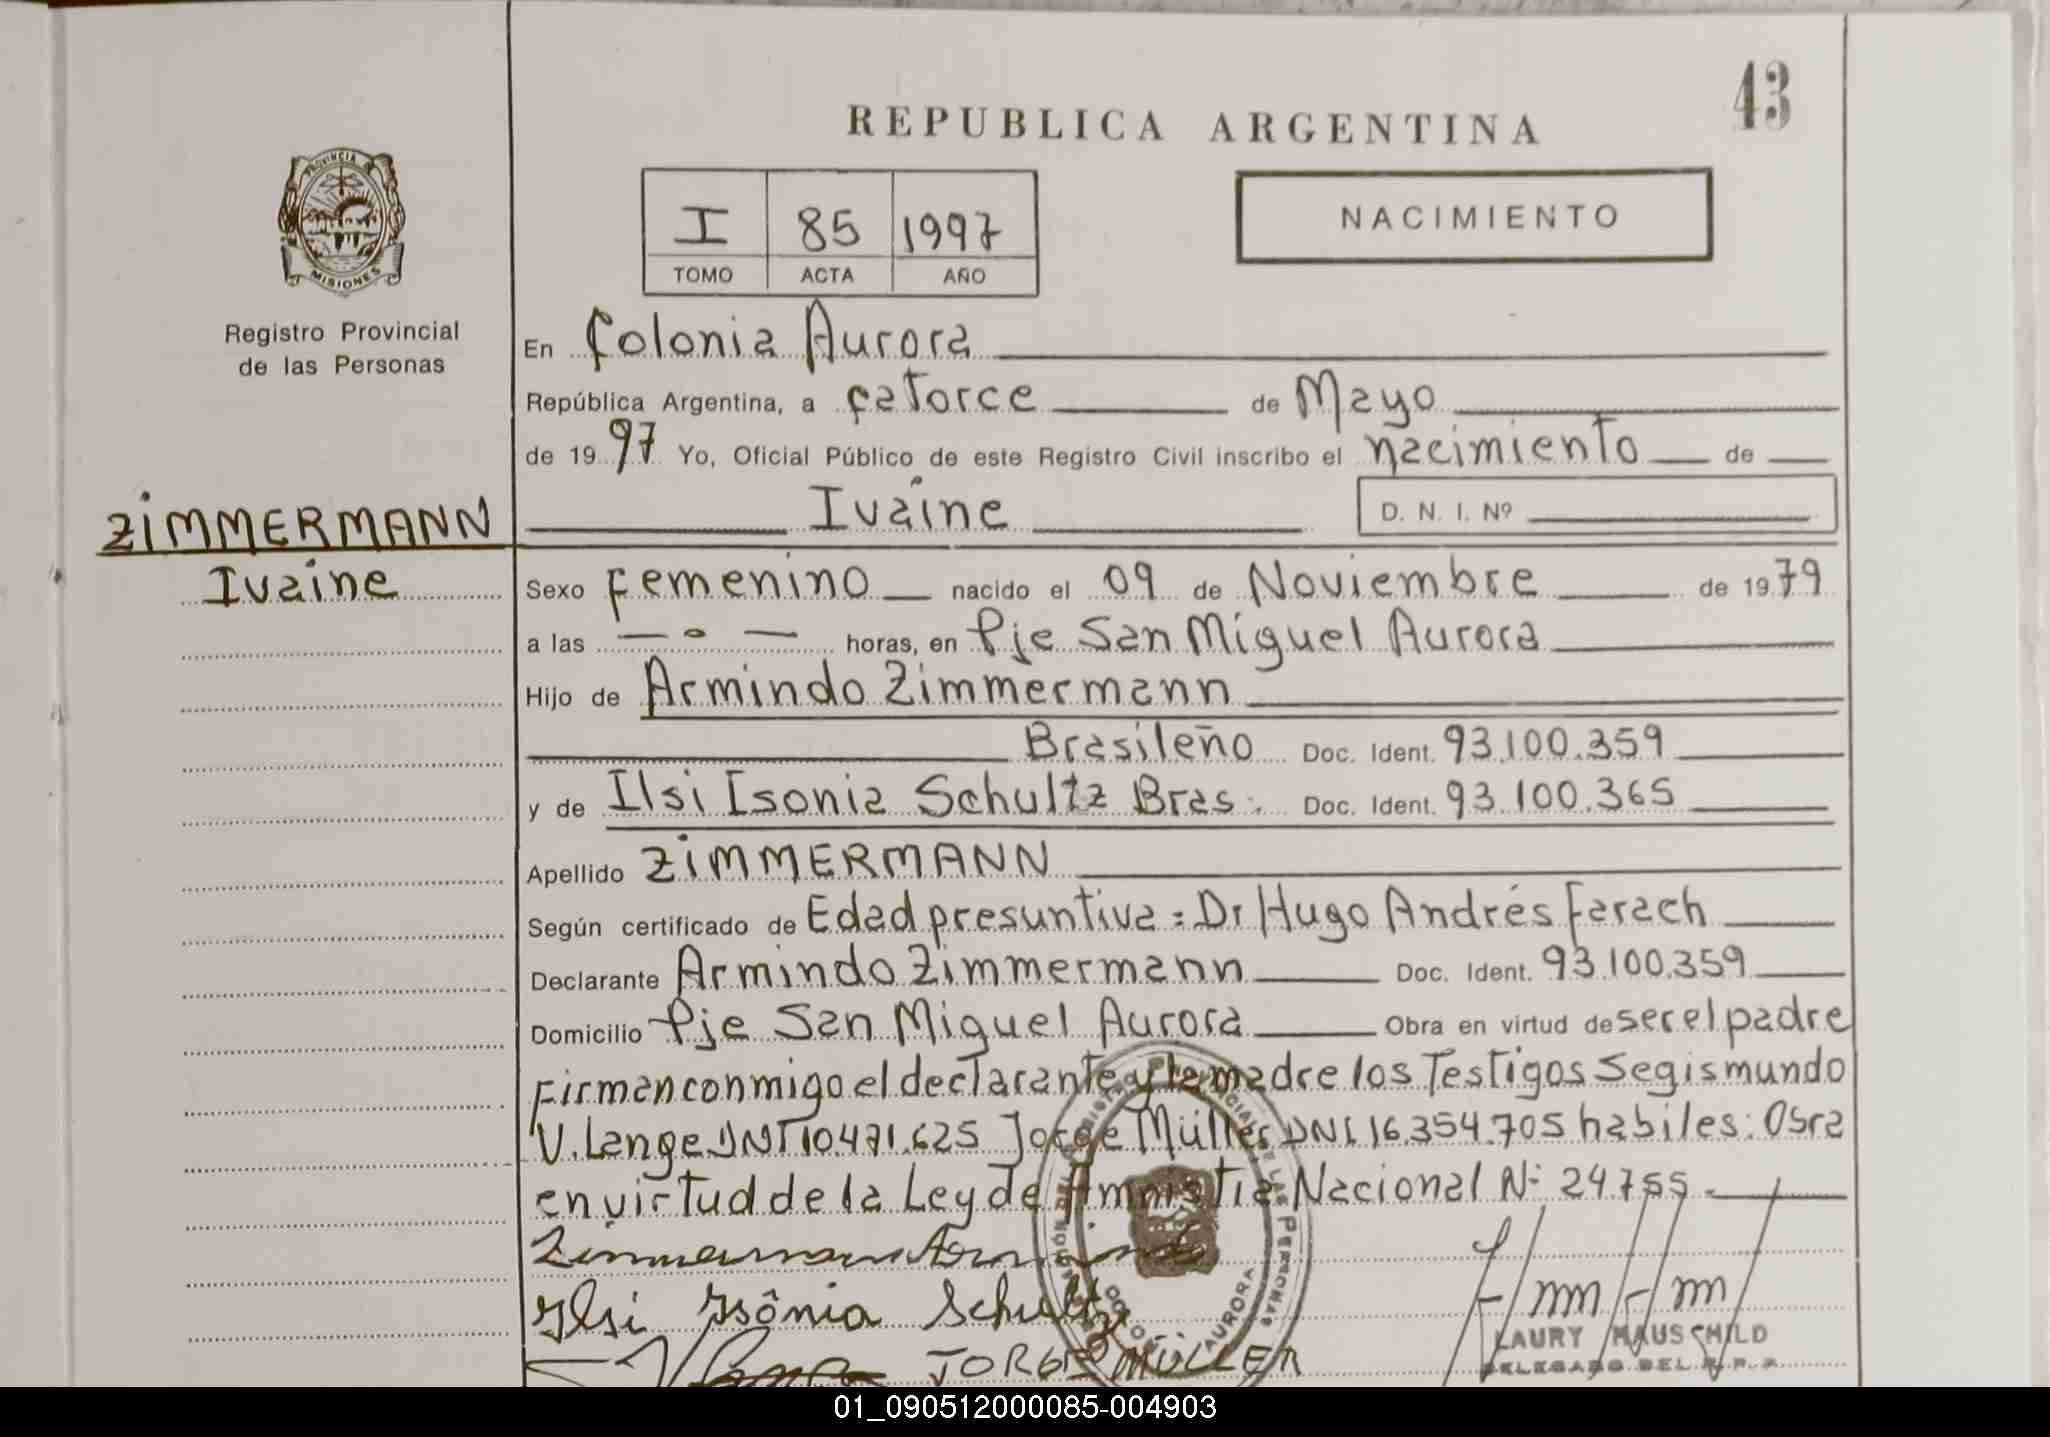 43
REPUBLICA ARGENTINA
PROVINCIA DE
MISIONES
I 85 1997
TOMO ACTA AÑO
NACIMIENTO
Registro Provincial
de las Personas
En Colonia Aurora
República Argentina, a catorce de Mayo
de 1997 Yo, Oficial Público de este Registro Civil inscribo el nacimiento de
Ivaine D. N. I. Nº
ZIMMERMANN
Ivaine
Sexo femenino nacido el 09 de Noviembre de 1979
a las — o — horas, en Pje San Miguel Aurora
Hijo de Armindo Zimmermann
Brasileño Doc. Ident. 93.100.359
y de Ilsi Isonia Schultz Bras. Doc. Ident. 93.100.365
Apellido ZIMMERMANN
Según certificado de Edad presuntiva = Dr Hugo Andrés Farach
Declarante Armindo Zimmermann Doc. Ident. 93.100.359
Domicilio Pje San Miguel Aurora Obra en virtud de ser el padre
Firman conmigo el declarante y la madre los Testigos Segismundo
V. Lange DNI 10.471.625 Jorge Müller DNI 16.354.705 habiles: Obra
en virtud de la Ley de Amnistia Nacional Nº 24755
Zimmermann Armindo
Ilsi Isônia Schultz
JORGE MÜLLER
LAURY MAUSCHILD
DELEGADO DEL R. P. P.
AURORA
01_090512000085-004903